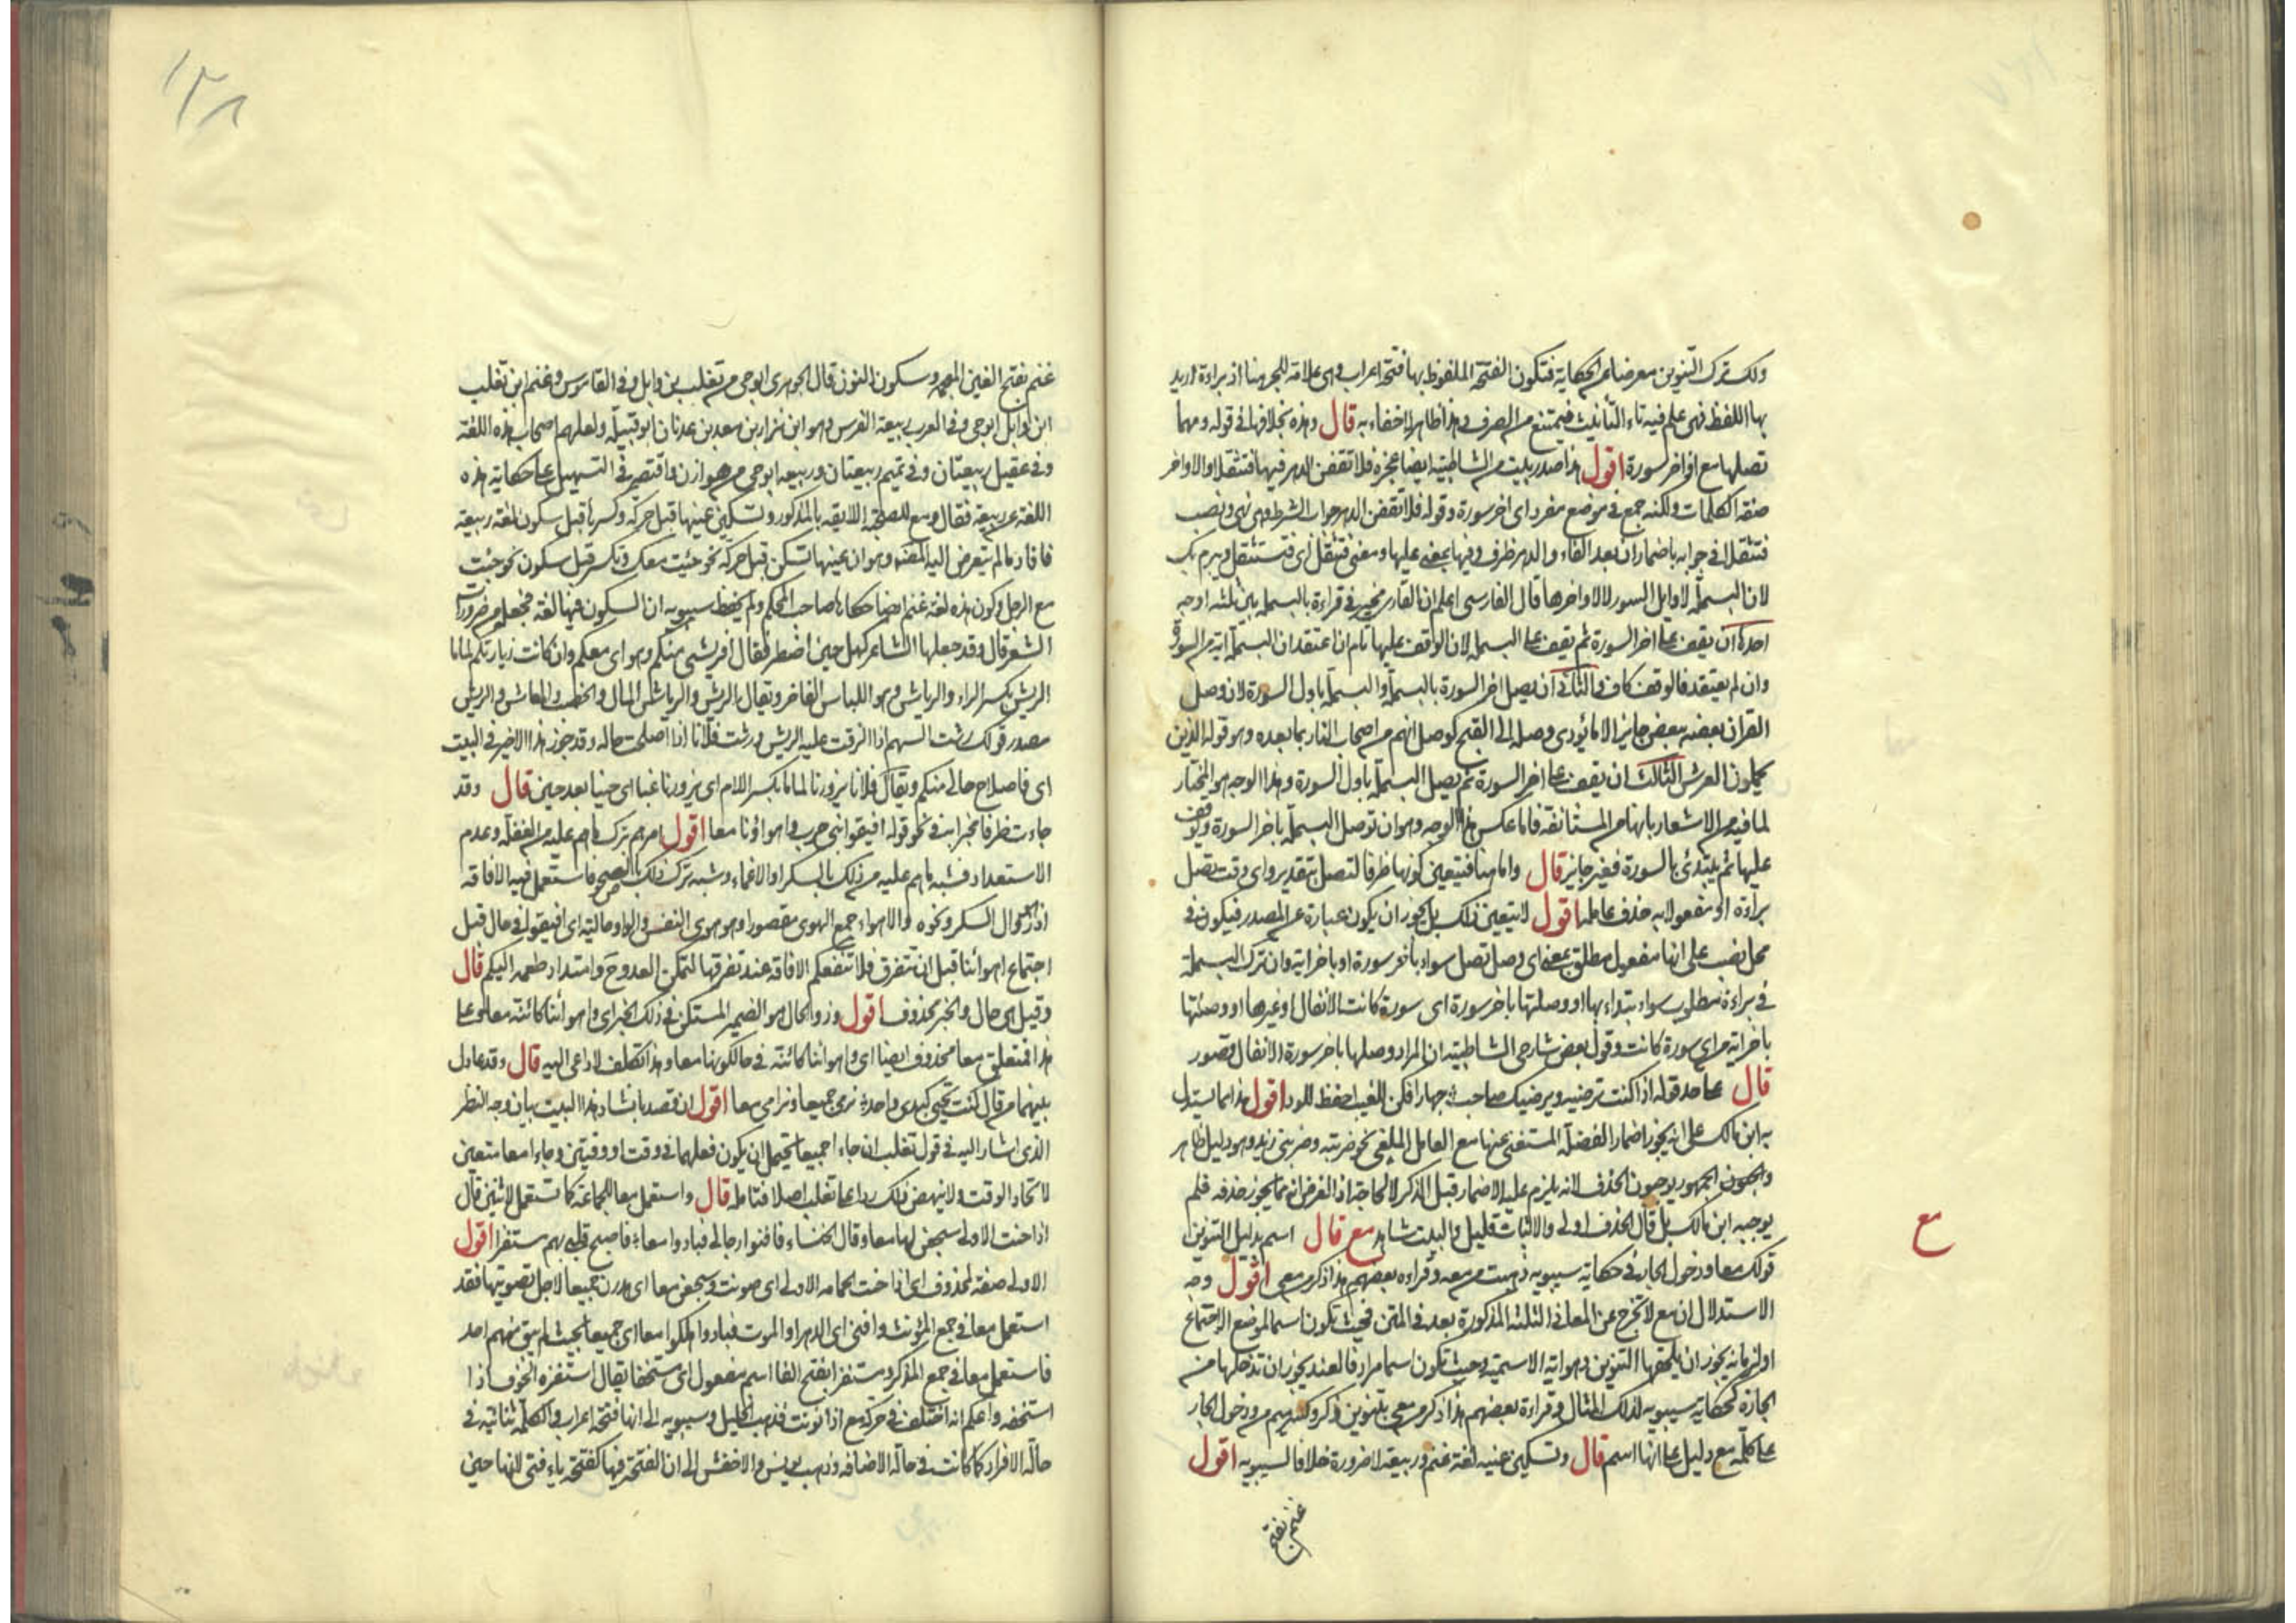 ولك ترك التنوين معرضا عن الحكاية فتكون الفتحة الملفوظ بها فتحة اعراب وهي علامة للجر هنا اذ براءة اريد
بها اللفظ فهي علم فيه تاء التأنيث فيمتنع من الصرف وهذا ظاهر لا خفاء به قال وهذه بخلافها في قوله ومهما
تصلها مع اواخر سورة اقول هذا صدر بيت من الشاطبية ايضا عجزه فلا تقفن الدهر فيها فتثقلا والاواخر
صفة الكلمات ولكنه جمع في موضع مفرد اي اخر سورة وقوله فلا تقفن الدهر جواب الشرط وهي نهي ونصب
فتثقلا في جوابه باضمار ان بعد الفاء والدهر ظرف وفيها بمعنى عليها ومعنى فتثقل اي فتستثقل ويبرم بك
لان البسملة لاوايل السور لا لاواخرها قال الفارسي اعلم ان القارئ مخير في قراءة بالبسملة بين ثلثة اوجه
احدها ان يقف على اخر السورة ثم يقف على البسملة لان الوقف عليها تام ان اعتقد ان البسملة اية من السورة
وان لم يعتقد فالوقف كاف والثاني ان يصل اخر السورة بالبسملة والبسملة باول السورة لان وصل
القران بعضه ببعض جايز الا ما يؤدي وصله الى القبح كوصل انهم من اصحاب النار بما بعده وهو قوله الذين
يحملون العرش الثالث ان يقف على اخر السورة ثم يصل البسملة باول السورة وهذا الوجه هو المختار
لما فيه من الاشعار بانها من المستانفة فاما عكس هذا الوجه وهو ان توصل البسملة باخر السورة ويوقف
عليها ثم يبتدئ بالسورة فغير جايز قال واما هنا فتيعين كونها ظرفا لتصل بتقدير واي وقت تصل
براءة او مفعولا به حذف عامله اقول لا يتعين ذلك بل يجوز ان يكون عبارة عن المصدر فيكون في
محل نصب على انها مفعول مطلق بمعنى اي وصل تصل سواء باخر سورة او باخر اية وان ترك البسملة
في براءة مطلوب سواء ابتداء بها او وصلتها باخر سورة اي سورة كانت الانفال او غيرها او وصلتها
باخر اية من اي سورة كانت وقول بعض شارحي الشاطبية ان المراد وصلها باخر سورة الانفال قصور
قال على حد قوله اذا كنت ترضيه ويرضيك صاحب جهارا فكن للغيب احفظ للود اقول هذا مما يستدل
به ابن مالك على انه يجوز اضمار الفضلة المستغنى عنها مع العامل الملغى نحو ضربته وضربني زيد وهو دليل ظاهر
والجمهور يوجبون الحذف لانه يلزم عليه الاضمار قبل الذكر لا لحاجة اذ الفرض انه مما يجوز حذفه فلم
يوجبه ابن مالك بل قال الحذف اولى والاثبات قليل والبيت شاهد مع قال اسم بدليل التنوين في
قولك معا ودخول الجار في حكاية سيبويه ذهبت من معه وقراءة بعضهم هذا ذكر من معي اقول وجه
الاستدلال ان مع لا تخرج عن المعاني الثلثة المذكورة بعد في المتن فحيث تكون اسما لموضع الاجتماع
او لزمانه يجوز ان يلحقها التنوين وهو اية الاسمية وحيث تكون اسما مرادفا لعند يجوز ان تدخلها من
الجارة كحكاية سيبويه لذلك المثال وقراءة بعضهم هذا ذكر من معي بتنوين ذكر وكسر ميم من ودخول الجار
على كلمة مع دليل على انها اسم قال وتسكين عينه لغة غنم وربيعة لا ضرورة خلافا لسيبويه اقول
غنم بفتح
مع
١٣٨
غنم بفتح الغين المعجمة وسكون النون قال الجوهري ابو حي من تغلب بن وايل وفي القاموس وغنم ابن تغلب
ابن وايل ابو حي وفي العرب ربيعة الفرس وهو ابن نزار بن معد بن عدنان ابو قبيلة ولعلهم اصحاب هذه اللغة
وفي عقيل ربيعتان وفي تميم ربيعتان وربيعه ابو حي من هوازن واقتصر في التسهيل على حكاية هذه
اللغة عن ربيعة فقال ومع للصحبة اللايقه بالمذكور وتسكين عينها قبل حركة وكسرها قبل سكون لغة ربيعة
فافاد ما لم يتعرض اليه المصنف وهو ان عينها تسكن قبل حركه نحو جئت معك وتكسر قبل سكون نحو جئت
مع الرجل وكون هذه لغة غنم ايضا حكاها صاحب المحكم ولم يحفظ سيبويه ان السكون فيها لغة فجعله من ضرورات
الشعر قال وقد جعلها الشاعر كهل حين اضطر فقال فريشي منكم وهواي معكم وان كانت زيارتكم لماما
الريش بكسر الراء والرياش وهو اللباس الفاخر ويقال الريش والرياش المال والخصب والمعاش والريش
مصدر قولك رشت السهم اذا الزقت عليه الريش ورشت فلانا اذا اصلحت حاله وقد جوز هذا الاخير في البيت
اي فاصلاح حالي منكم ويقال فلانا يزورنا لماما بكسر اللام اي يزورنا غبا اي حينا بعد حين قال وقد
جاءت ظرفا مخبرا به في نحو قوله افيقوا بني حرب واهواؤنا معا اقول امرهم بترك ما هم عليه من الغفلة وعدم
الاستعداد فشبه ما هم عليه من ذلك بالسكر او الاغماء وشبه ترك ذلك بالصحو فاستعمل فيه الافاقة
اذ هي زوال السكر ونحوه والاهواء جمع الهوى مقصورا وهو هوى النفس والواو حالية اي افيقوا في حال قبل
اجتماع اهوائنا قبل ان تتفرق فلا تنفعكم الافاقة عند تفرقها لتمكن العدو ح وامتداد طمعه اليكم قال
وقيل هي حال والخبر محذوف اقول وذو الحال هو الضمير المستكن في ذلك الخبر اي واهوائنا كائنة معا وعلى
هذا فمتعلق معا محذوف ايضا اي واهوائنا كائنة في حال كونها معا وهذا تكلف لا داعي اليه قال وقد عادل
بينهما من قال كنت يحيى كيدي واحد نرمي جميعا ونرامى معا اقول ان قصد بانشاد هذا البيت بيان وجه النظر
الذي اشار اليه في قول تغلب ان جاءا جميعا يحتمل ان يكون فعلهما في وقت او وقتين وجاءا معا متعين
لاتحاد الوقت ولا ينهض ذلك ردا على تغلب اصلا فتامله قال واستعمل معا للجماعة كما تستعمل لاثنين قال
اذا حنت الاولى سجعن لها معا وقال الخنساء فافنوا رجالي فبادوا معا فاصبح قلبي بهم مستفزا اقول
الاولى صفة لمحذوف اي اذا حنت الحمامه الاولى اي صوتت وسجعن معا اي هدرن جميعا لاجل تصويتها فقد
استعمل معا في جمع المؤنث وافنى اي الدهر او الموت فبادوا هلكوا معا اي جميعا بحيث لم يبق منهم احد
فاستعمل معا في جمع المذكر ومستفزا بفتح الفا اسم مفعول اي مستخفا يقال استفزه الخوف اذا
استخفه واعلم انه اختلف في حركة مع اذا نونت فذهب الخليل وسيبويه الى انها فتحة اعراب والكلمة ثنائية في
حالة الافراد كما كانت في حالة الاضافه وذهب يونس والاخفش الى ان الفتحة فيها كفتحة تاء فتى لانها حين